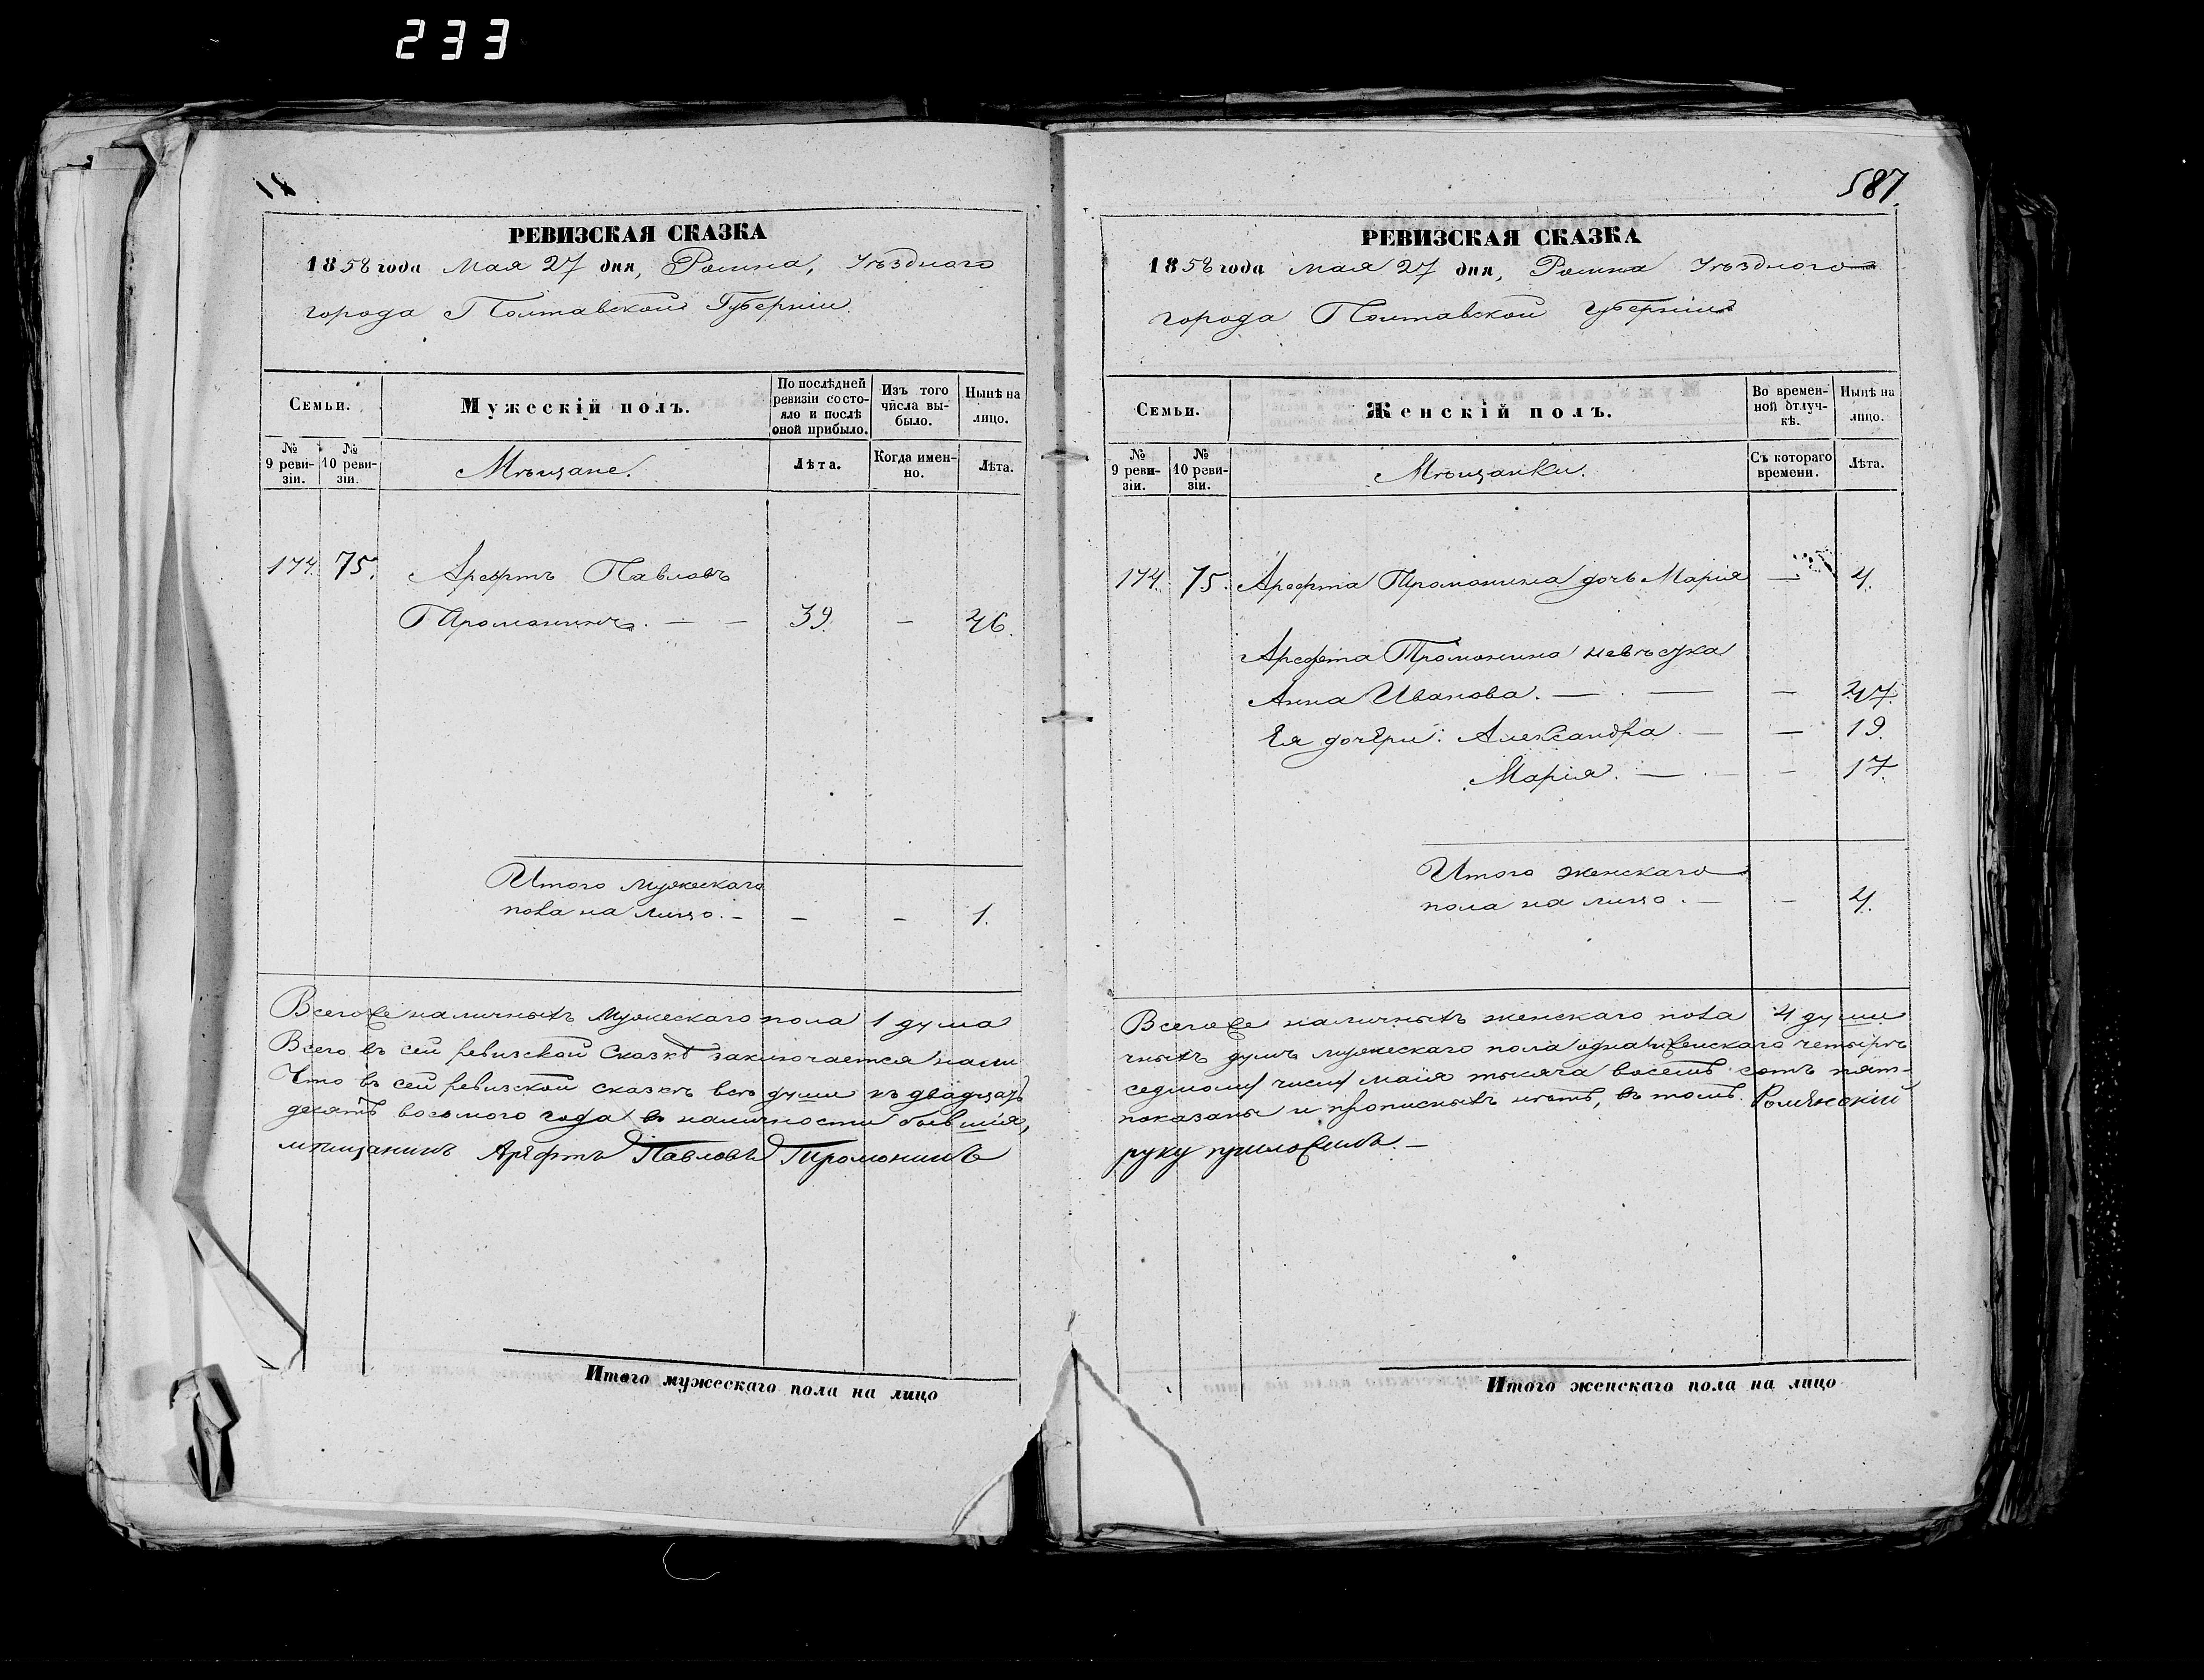 233
18
РЕВИЗСКАЯ СКАЗКА
1858 года Мая 27 дня, Ромна, Уѣзднаго
города Полтавской Губерніи.
Семьи.
Мужескій полъ.
По послѣдней ревизіи состояло и послѣ оной прибыло.
Изъ того числа выбыло.
Нынѣ на лицо.
№ 9 ревизіи.
№ 10 ревизіи.
Мѣщане.
Лѣта.
Когда именно.
Лѣта.
174. 75. Арефтъ Павловъ
Промонинъ. — — 39. — 46.
Итого мужескаго
пола на лицо. — — — 1.
Всего же наличныхъ мужескаго пола 1 душа
Всего въ сей ревизской Сказкѣ заключается нали
Что въ сей ревизской сказкѣ всѣ души къ двадцать
десятъ восьмого года въ наличности бывшія,
мѣщанинъ Арефтъ Павловъ Промонинъ
Итого мужескаго пола на лицо
587.
РЕВИЗСКАЯ СКАЗКА
1858 года мая 27 дня, Ромна Уѣзднаго
города Полтавской губерніи
Семьи.
Женскій полъ.
Во временной отлучкѣ.
Нынѣ на лицо.
№ 9 ревизіи.
№ 10 ревизіи.
Мѣщанки.
Съ котораго времени.
Лѣта.
174. 75. Арефта Промонина дочь Марія — 4.
Арефта Промонина невѣстка
Анна Иванова. — — — 47.
Ея дочери: Александра — — 19.
Марія. — — — 17.
Итого женскаго
пола на лицо. — — 4.
Всего же наличныхъ женскаго пола 4 души
чныхъ душъ мужескаго пола одна и женскаго четыре
седмому числу маія тысяча восемь сотъ пят-
показаны и прописныхъ нѣтъ, въ томъ. Роменскій
руку приложилъ. —
Итого женскаго пола на лицо